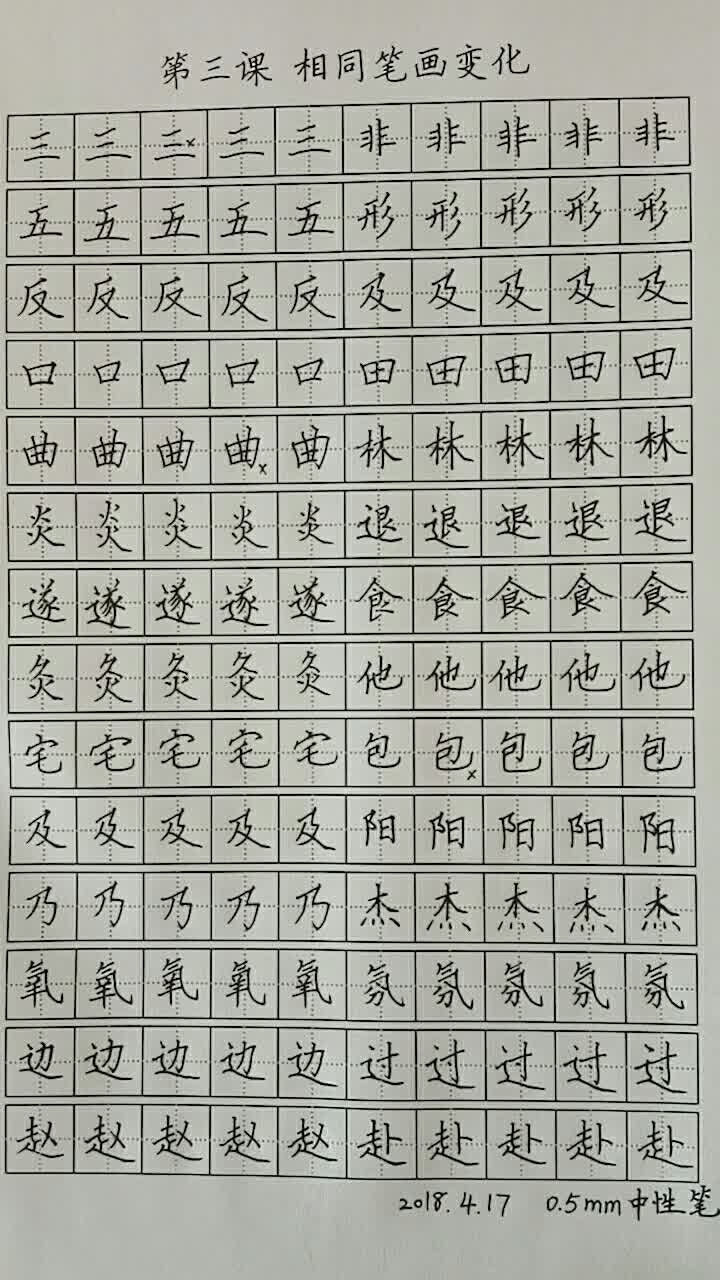 第三课 相同笔画变化
三三三三三非非非非非
五五五五五形形形形形
反反反反反及及及及及
口口口口口田田田田田
曲曲曲曲曲林林林林林
炎炎炎炎炎退退退退退
遂遂遂遂遂食食食食食
灸灸灸灸灸他他他他他
宅宅宅宅宅包包包包包
及及及及及阳阳阳阳阳
乃乃乃乃乃杰杰杰杰杰
氧氧氧氧氧氛氛氛氛氛
边边边边边过过过过过
赵赵赵赵赵赴赴赴赴赴
2018.4.17 0.5mm中性笔